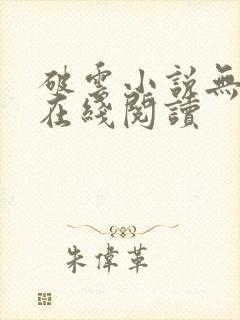 破雲小說無
在綫閱讀
朱偉革